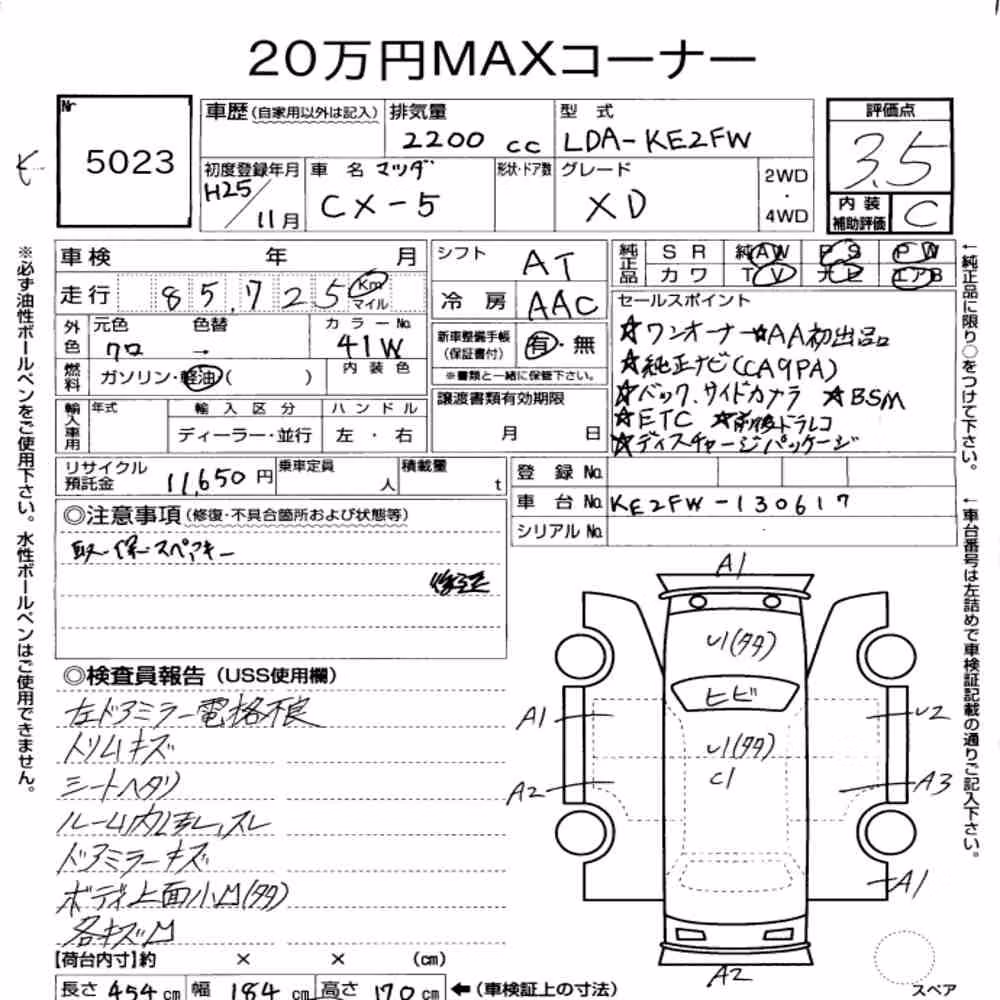 20万円MAXコーナー
Nr
5023
車歴(自家用以外は記入)
排気量
2200 cc
型式
LDA-KE2FW
評価点
3.5
初度登録年月
H25/11月
車名 マツダ
CX-5
形状・ドア数
グレード
XD
2WD
・
4WD
内装
補助評価
C
車検 年 月
走行 85,725 Km
マイル
外色
元色 色替
クロ →
カラーNo.
41W
燃料
ガソリン・軽油( )
内装色
輸入車用
年式
輸入区分
ディーラー・並行
ハンドル
左・右
シフト
AT
冷房
AAC
新車整備手帳
(保証書付)
有・無
※書類と一緒に保管下さい。
譲渡書類有効期限
月 日
純正品
SR 純AW PS PW
カワ TV ナビ エアB
セールスポイント
☆ワンオーナー ☆AA初出品
☆純正ナビ(CA9PA)
☆バック、サイドカメラ ☆BSM
☆ETC ☆前後ドラレコ
☆ディスチャージパッケージ
リサイクル
預託金
11,650円
乗車定員
人
積載量
t
登録No.
車台No. KE2FW-130617
シリアルNo.
◎注意事項(修復・不具合箇所および状態等)
取・保・スペアキー
後送
◎検査員報告(USS使用欄)
左ドアミラー電格不良
トリムキズ
シートヘタリ
ルーム内ヨゴレ、スレ
ドアミラーキズ
ボディ上面小凹(タタ)
各キズ凹
A1
U1(タタ)
ヒビ
A1
U2
U1(タタ)
C1
A2
A3
A1
A2
スペア
【荷台内寸】約 × × (cm)
長さ 454cm 幅 184cm 高さ 170cm
←(車検証上の寸法)
※必ず油性ボールペンをご使用下さい。水性ボールペンはご使用できません。
←純正品に限り○をつけて下さい。
←車台番号は左詰めで車検証記載の通りご記入下さい。